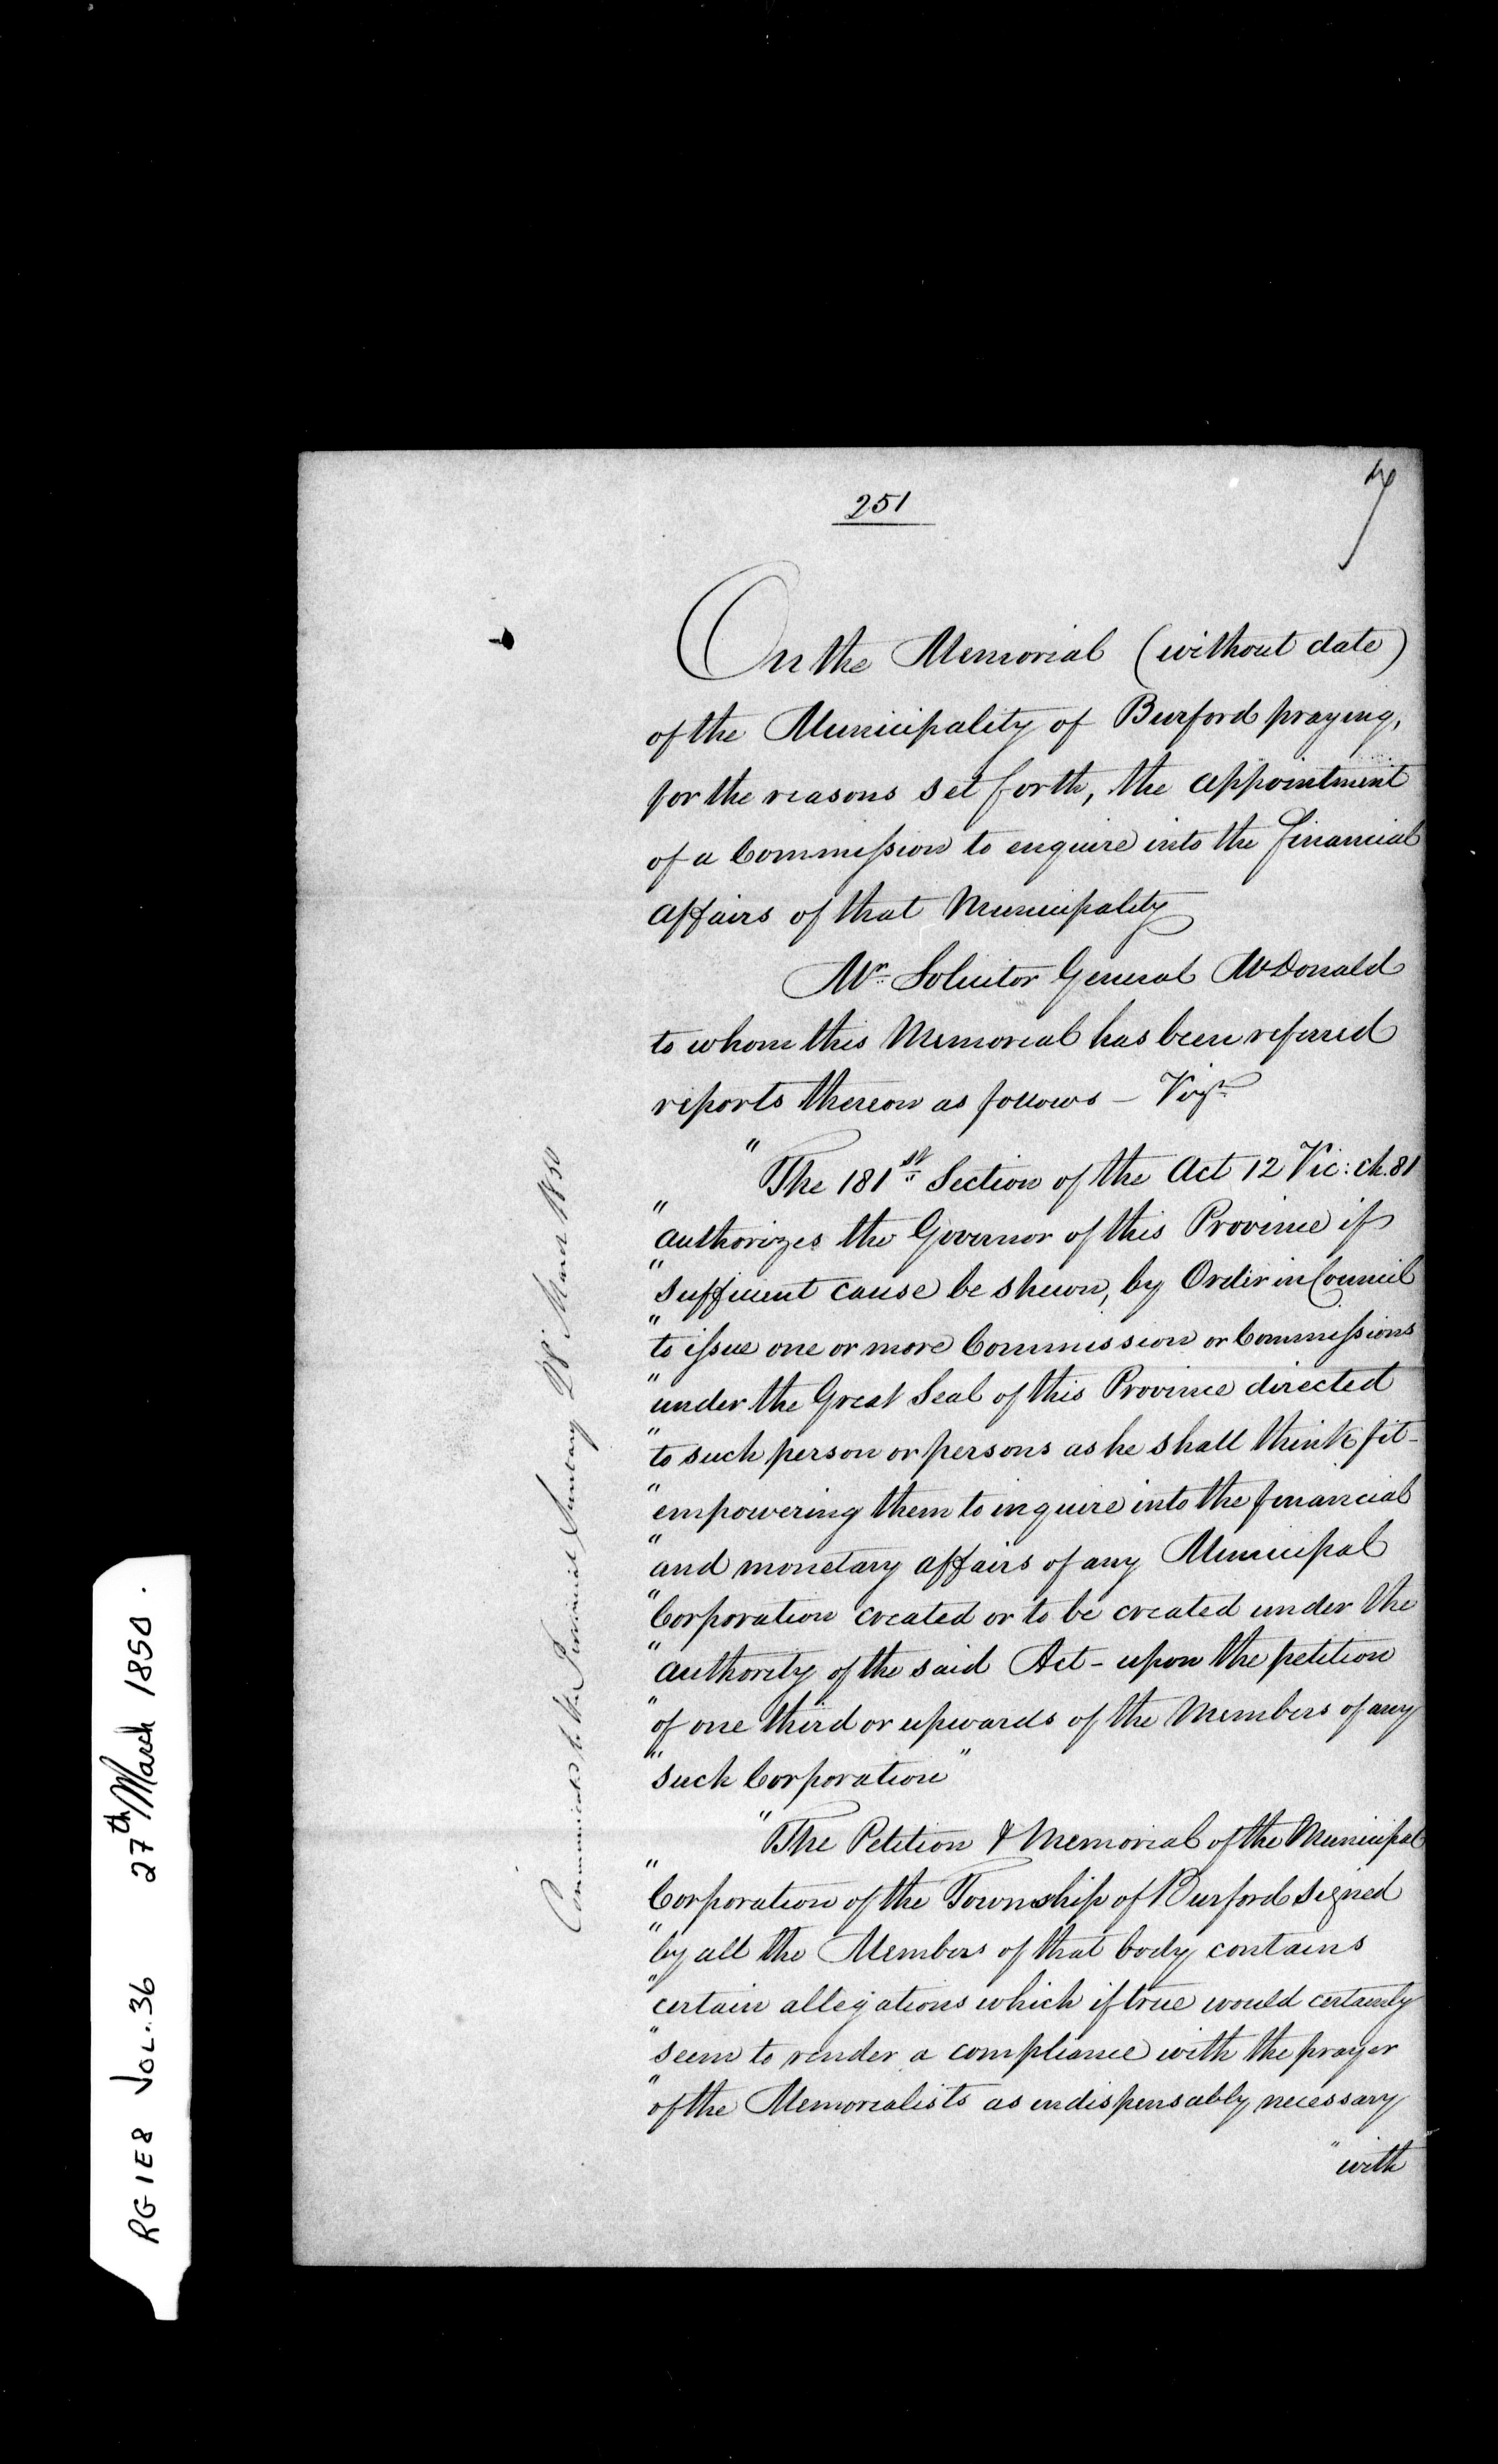 251
On the Memorial (without date)
of the Municipality of Burford praying,
for the reasons set forth, the appointment
of a Commission to enquire into the financial
affairs of that Municipality
Mr. Solicitor General McDonald
to whom this Memorial has been referred
reports thereon as follows – Vizt.
"The 181st. Section of the Act 12 Vic: ch. 81
"authorizes the Governor of this Province if
"sufficient cause be shewn, by Order in Council
"to issue one or more Commission or Commissions
"under the Great Seal of this Province directed
"to such person or persons as he shall think fit –
"empowering them to inquire into the financial
"and monetary affairs of any Municipal
"Corporation created or to be created under the
"authority of the said Act – upon the petition
"of one third or upwards of the Members of any
"such Corporation"
"The Petition & Memorial of the Municipal
"Corporation of the Township of Burford signed
"by all the Members of that body contains
"certain allegations which if true would certainly
"seem to render a compliance with the prayer
"of the Memorialists as indispensably necessary
"with
Communicated to the Provincial Secretary 28 March 1850
RG 1E8 VOL. 36 27th March 1850.